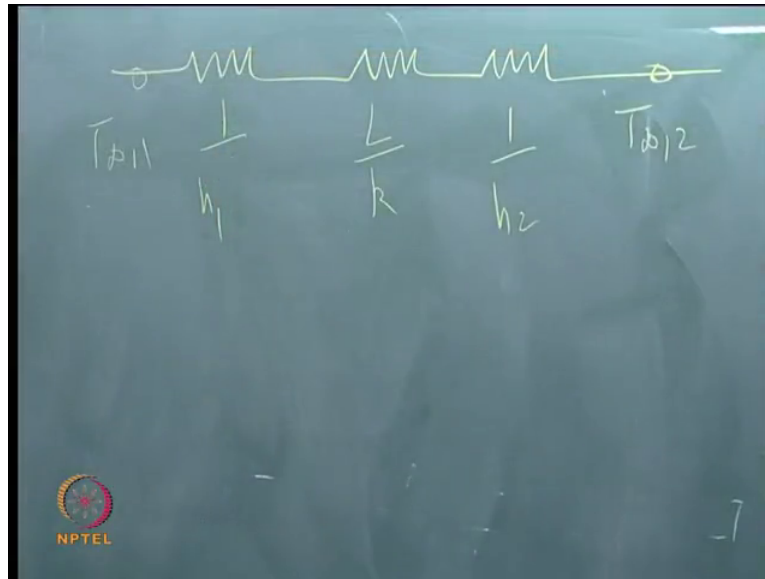 T∞,1 1/h₁ L/k 1/h₂ T∞,2
NPTEL